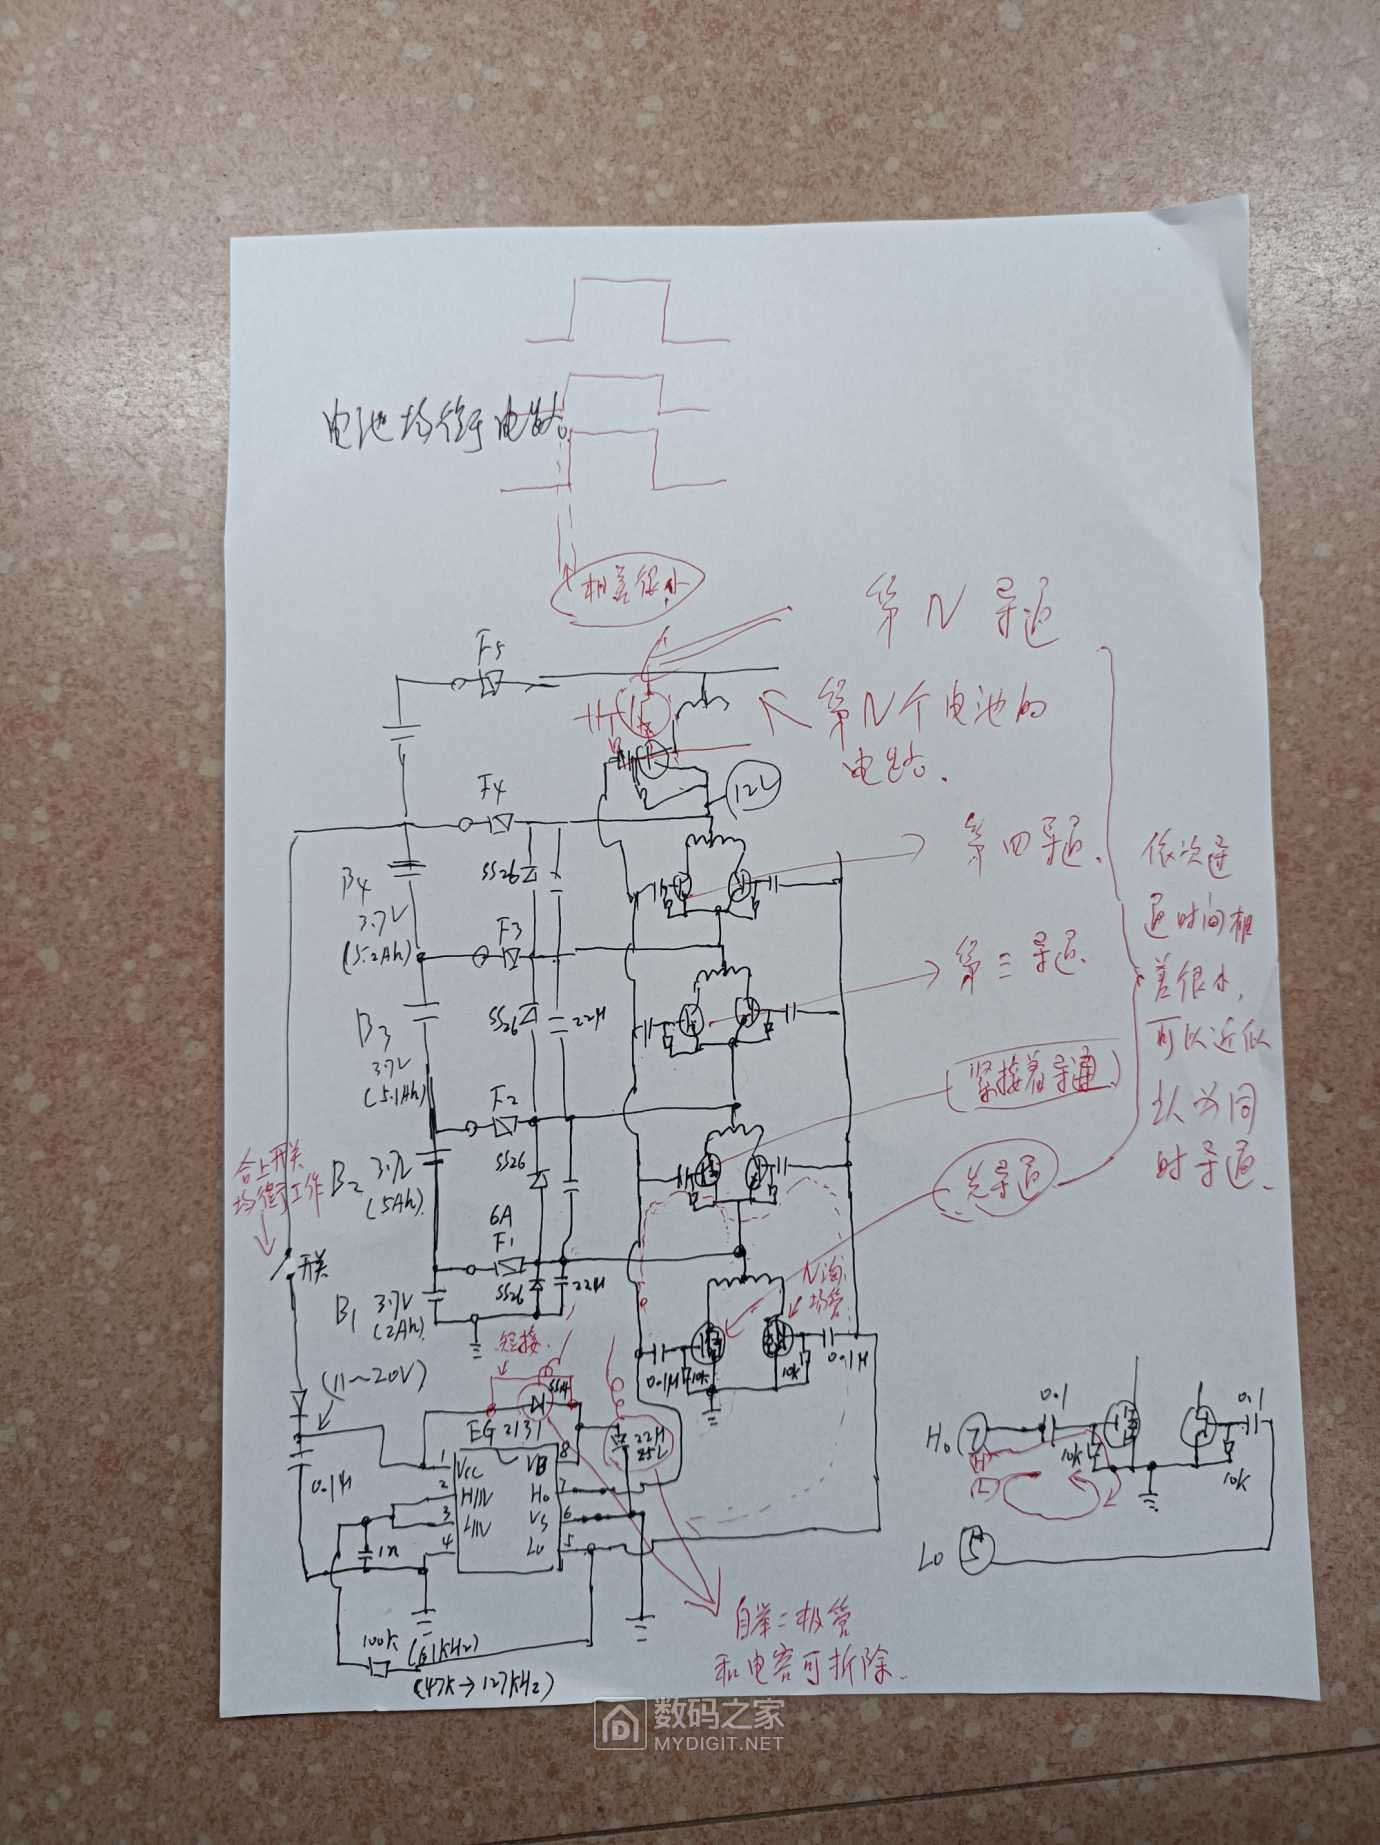 电池均衡电路。
相差很小
第N导通
F5
第N个电池的
电路.
F4
12V
SS26
第四导通.
B4
3.7V
(5.2Ah)
F3
第三导通.
依次导
通时间相
差很小,
可以近似
认为同
时导通.
SS26
22μ
B3
3.7V
(5.1Ah)
(紧接着导通)
F2
先导通
合上开关
均衡工作
B2
3.7V
(5Ah)
SS26
6A
F1
开关
SS26
22μ
N沟
场管
B1
3.7V
(2Ah)
短接.
0.1μ
10K
10K
0.1μ
(11~20V)
SS14
EG2131
22μ
25V
0.1μ
1
VCC
VB
8
2
HIN
Ho
7
3
LIN
VS
6
4
Lo
5
1n
100K
(61KHz)
(47K→127KHz)
自举二极管
和电容可拆除.
Ho
7
(H)
(L)
0.1
10K
0.1
10K
LO
5
数码之家
MYDIGIT.NET